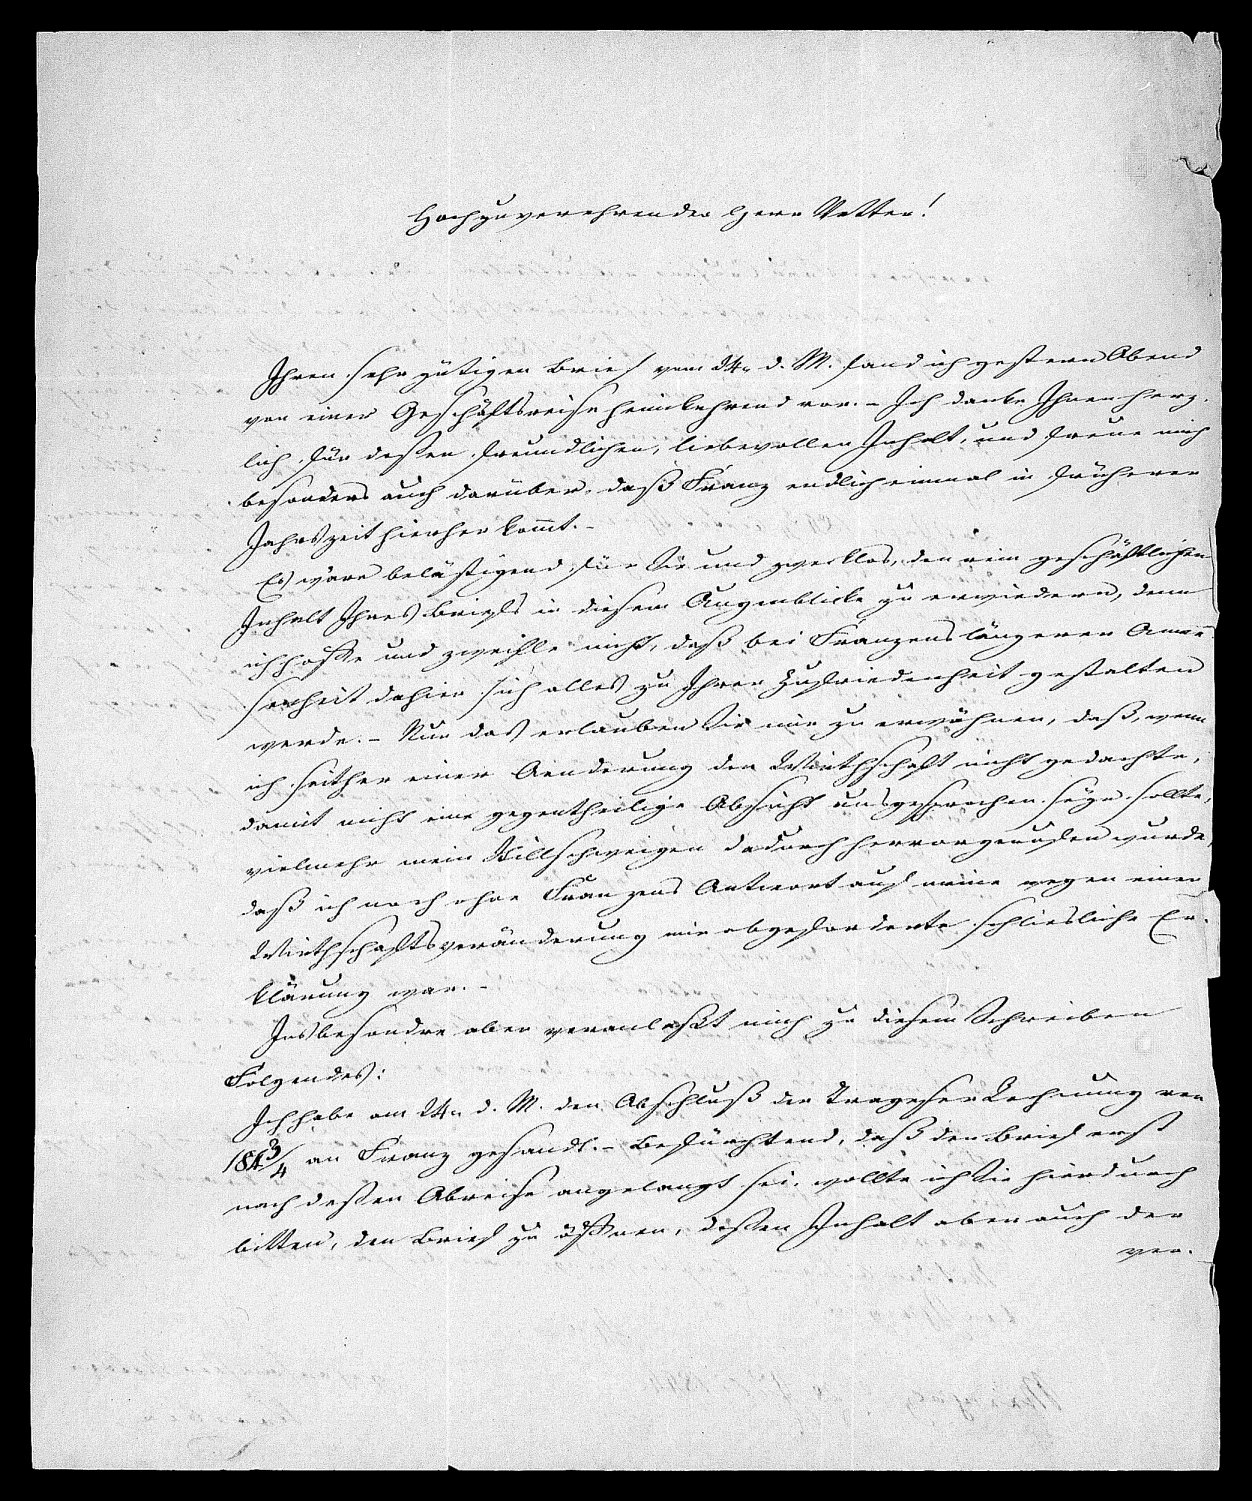 Hochzuverehrender Herr Vetter!
Ihren sehr gütigen Brief vom 24. d. M. fand ich gestern Abend
von einer Geschäftsreise heimkehrend vor. – Ich danke Ihnen herz-
lich für deßen freundlichen, liebevollen Inhalt, und freue mich
besonders auch darüber, daß Franz endlich einmal in früherer
Jahrszeit hierher kommt. –
Es wäre belästigend für Sie und zwecklos, den rein geschäftlichen
Inhalt Ihres Briefs in diesem Augenblicke zu erwiedern, denn
ich hoffe und zweifle nicht, daß bei Franzens längerer Anwe-
senheit dahier sich alles zu Ihrer Zufriedenheit gestalten
werde. – Nur das erlauben Sie mir zu erwähnen, daß, wenn
ich seither einer Aenderung der Wirthschaft nicht gedachte,
damit nicht eine gegentheilige Absicht ausgesprochen seyn sollte,
vielmehr mein Stillschweigen dadurch hervorgerufen wurde,
daß ich noch ohne Franzens Antwort auf meine wegen einer
Wirthschaftsveränderung mir abgeforderte schliesliche Er-
klärung war. –
Insbesondre aber veranlaßt mich zu diesem Schreiben
Folgendes:
Ich habe am 24. d. M. den Abschluß der Trageser Rechnung von
1843/4 an Franz gesandt. – Befürchtend, daß der Brief erst
nach deßen Abreise angelangt sei, wollte ich Sie hierdurch
bitten, den Brief zu öffnen, deßen Inhalt aber auch der
ver-